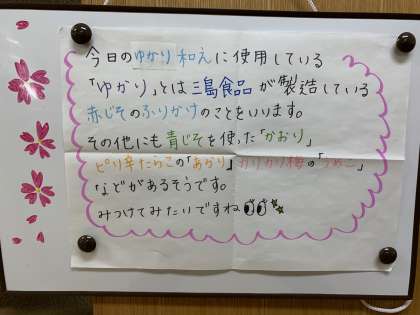 今日のゆかり和えに使用している
「ゆかり」とは三島食品が製造している
赤じそのふりかけのことをいいます。
その他にも青じそを使った「かおり」
ピリ辛たらこの「あかり」カリカリ梅の「うめこ」
などがあるそうです。
みつけてみたいですね